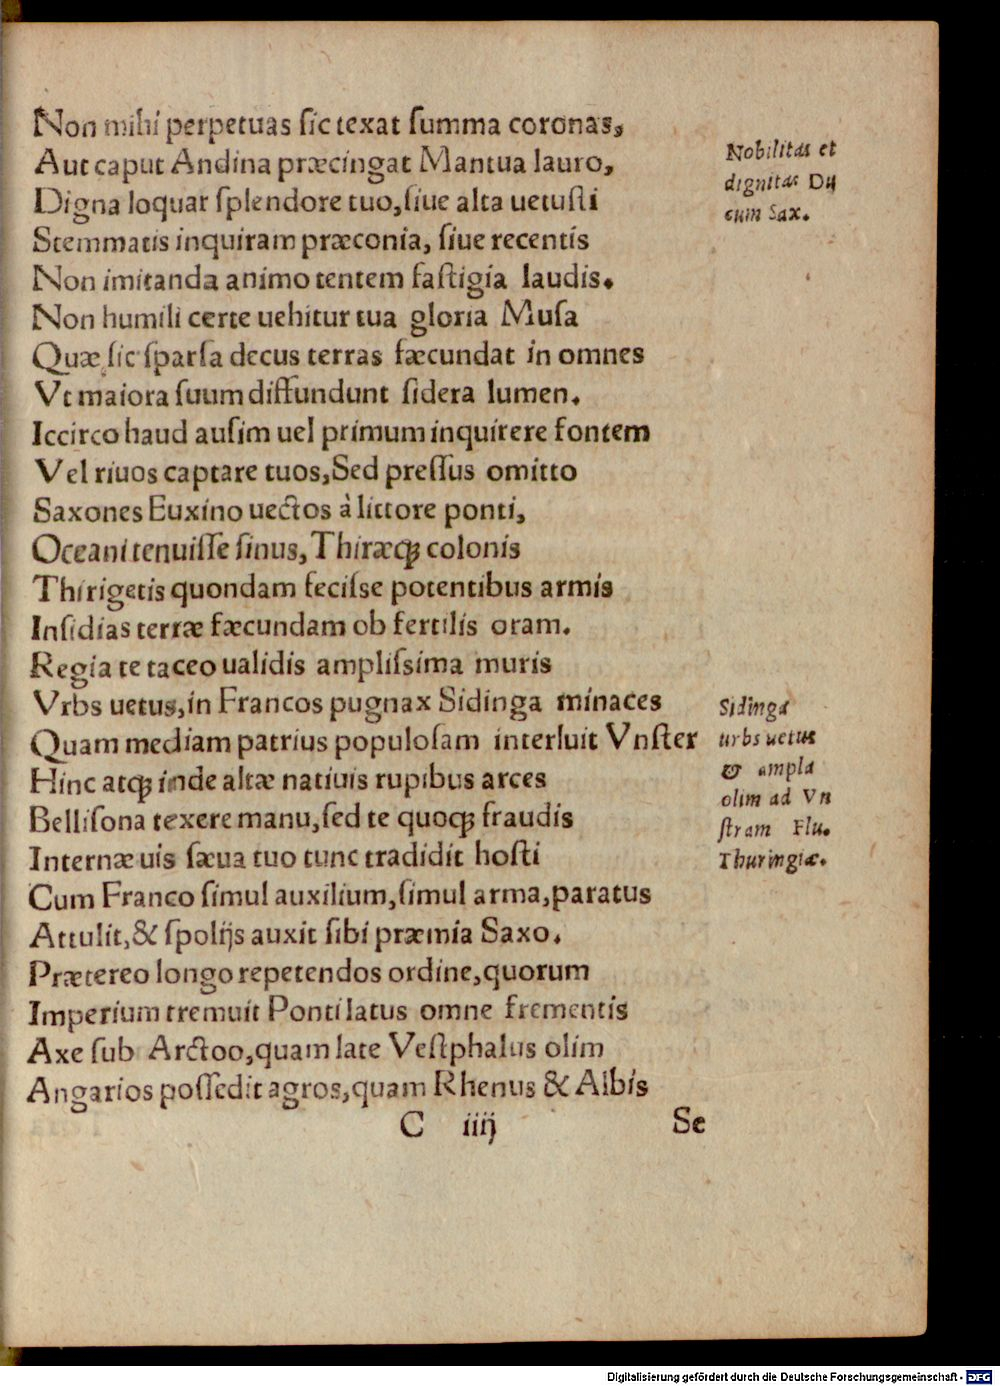 Non mihi perpetuas ſic texat ſumma coronas,
Aut caput Andina præcingat Mantua lauro,
Digna loquar ſplendore tuo, ſiue alta uetuſti
Stemmatis inquiram præconia, ſiue recentis
Non imitanda animo tentem faſtigia laudis.
Non humili certe uehitur tua gloria Muſa
Quæ ſic ſparſa decus terras fæcundat in omnes
Vt maiora ſuum diffundunt ſidera lumen.
Iccirco haud auſim uel primum inquirere fontem
Vel riuos captare tuos, Sed preſſus omitto
Saxones Euxino uectos à littore ponti,
Oceani tenuiſſe ſinus, Thiræcꝗ colonis
Thirigetis quondam feciſse potentibus armis
Inſidias terræ fæcundam ob fertilis oram.
Regia te taceo ualidis ampliſsima muris
Vrbs uetus, in Francos pugnax Sidinga minaces
Quam mediam patrius populoſam interluit Vnſter
Hinc atcꝗ inde altæ natiuis rupibus arces
Belliſona texere manu, ſed te quocꝗ fraudis
Internæ uis ſæua tuo tunc tradidit hoſti
Cum Franco ſimul auxilium, ſimul arma, paratus
Attulit, & ſpolijs auxit ſibi præmia Saxo.
Prætereo longo repetendos ordine, quorum
Imperium tremuit Ponti latus omne frementis
Axe ſub Arctoo, quam late Veſtphalus olim
Angarios poſſedit agros, quam Rhenus & Albis
C iiij Se
Nobilitas et
dignitas Du
cum Sax.
Sidinga
urbs uetus
& ampla
olim ad Vn
ſtram Flu.
Thuringiæ.
Digitalisierung gefördert durch die Deutsche Forschungsgemeinschaft - DFG